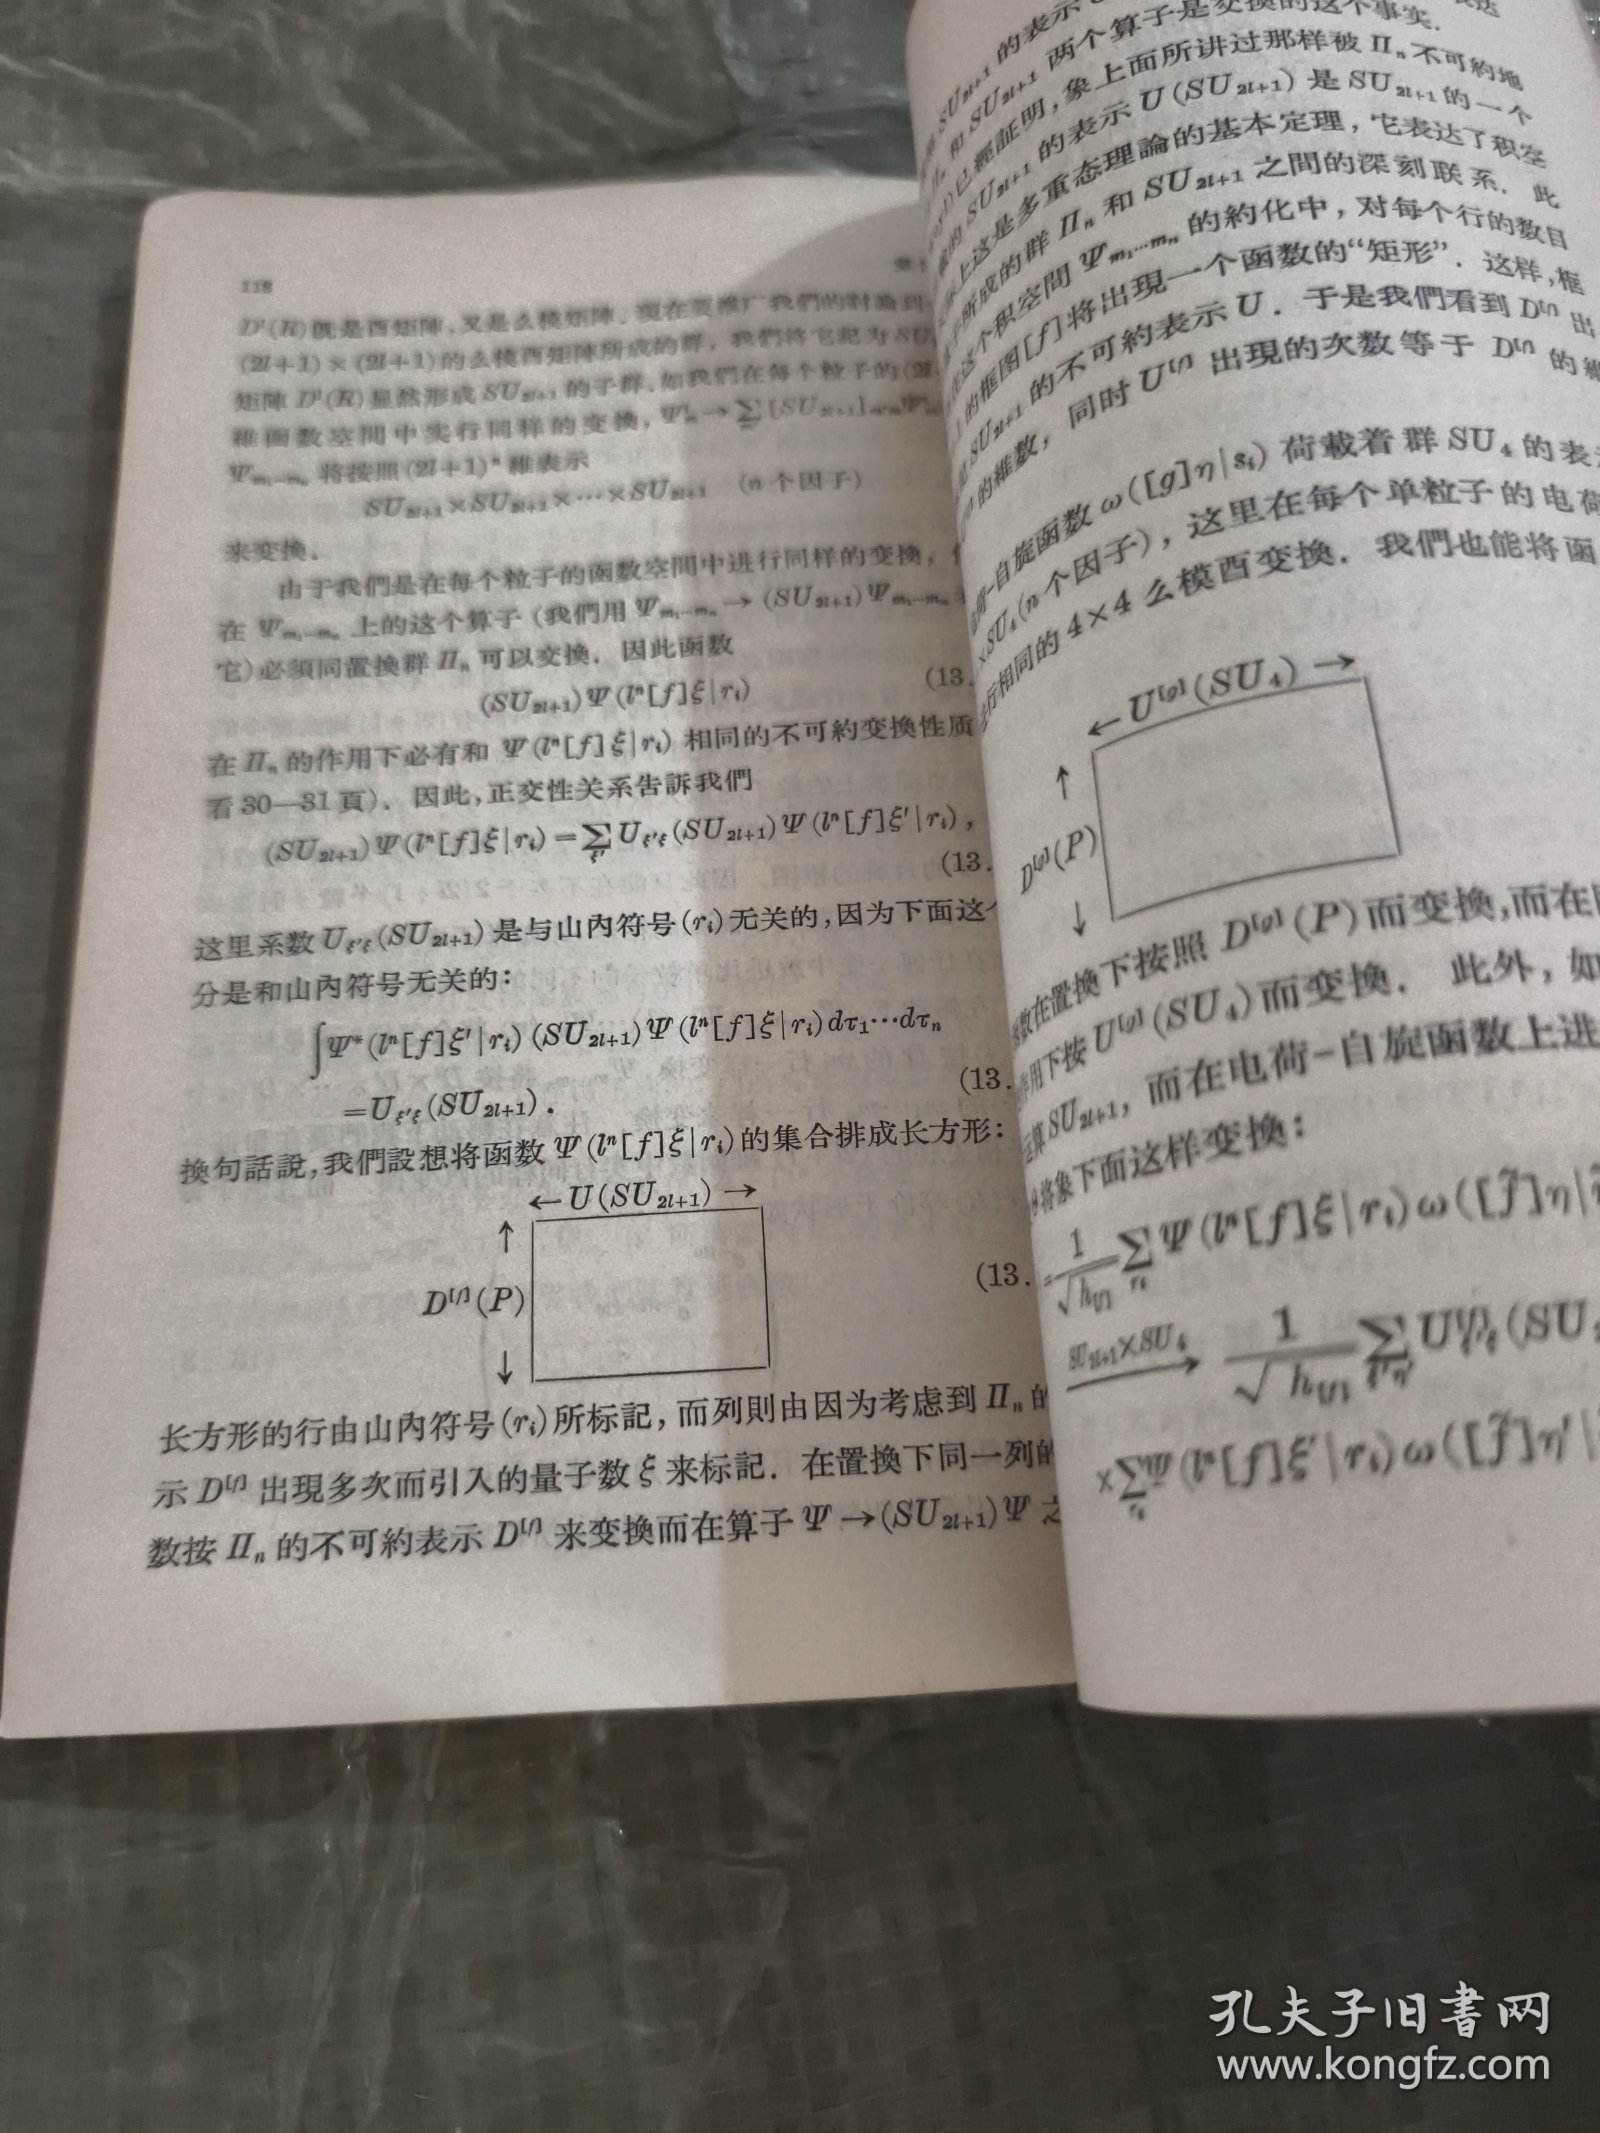 118
D^l(R)既是酉矩陣,又是么模矩陣.現在要推广我們的討論到
(2l+1)×(2l+1)的么模酉矩陣所成的群.我們将它記为SU
矩陣 D^l(R)显然形成 SU_{2l+1} 的子群.如我們在每个粒子的(2l
維函数空間中实行同样的变换,
将按照(2l+1)^n 維表示
SU_{2l+1}×SU_{2l+1}×⋯×SU_{2l+1} (n 个因子)
来变换.
由于我們是在每个粒子的函数空間中进行同样的变换,
在 Ψ_{m₁⋯mₙ} 上的这个算子(我們用 Ψ_{m₁⋯mₙ}→(SU_{2l+1})Ψ_{m₁⋯mₙ}
它)必須同置換群 Πₙ 可以变换.因此函数
(SU_{2l+1})Ψ(lⁿ[f]ξ|rᵢ) (13.
在 Πₙ 的作用下必有和 Ψ(lⁿ[f]ξ|rᵢ)相同的不可約变換性质
看30—31頁).因此,正交性关系告訴我們
(SU_{2l+1})Ψ(lⁿ[f]ξ|rᵢ)=∑_{ξ′}U_{ξ′ξ}(SU_{2l+1})Ψ(lⁿ[f]ξ′|rᵢ),
(13.
这里系数 U_{ξ′ξ}(SU_{2l+1})是与山內符号(rᵢ)无关的,因为下面这个
分是和山內符号无关的:
∫Ψ*(lⁿ[f]ξ′|rᵢ)(SU_{2l+1})Ψ(lⁿ[f]ξ|rᵢ)dτ₁⋯dτₙ
=U_{ξ′ξ}(SU_{2l+1}). (13.
換句話說,我們設想将函数 Ψ(lⁿ[f]ξ|rᵢ)的集合排成长方形:
←U(SU_{2l+1})→
↑
D^{[f]}(P) (13.
↓
长方形的行由山內符号(rᵢ)所标記,而列則由因为考慮到 Πₙ 的
示 D^{[f]} 出現多次而引入的量子数 ξ 来标記.在置換下同一列的
数按 Πₙ 的不可約表示 D^{[f]} 来变換而在算子 Ψ→(SU_{2l+1})Ψ 之
SU_{2l+1} 的表示
和 SU_{2l+1} 两个算子是变换的这个事实.
已經証明,象上面所讲过那样被 Πₙ 不可約地
的 SU_{2l+1} 的表示 U(SU_{2l+1})是 SU_{2l+1} 的一个
上这是多重态理論的基本定理,它表达了积空
所成的群 Πₙ 和 SU_{2l+1} 之間的深刻联系.此
在这个积空間 Ψ_{m₁⋯mₙ} 的約化中,对每个行的数目
的框图[f]将出現一个函数的“矩形”.这样,框
SU_{2l+1} 的不可約表示 U.于是我們看到 D^{[f]} 出
的維数,同时 U^{[f]} 出現的次数等于 D^{[f]} 的維
-自旋函数 ω([g]η|sᵢ)荷載着群 SU₄ 的表
×SU₄(n 个因子),这里在每个单粒子的电荷
行相同的 4×4 么模酉变換.我們也能将函
←U^{[g]}(SU₄)→
↑
D^{[g]}(P)
↓
数在置換下按照 D^{[g]}(P)而变換,而在
作用下按 U^{[g]}(SU₄)而变換.此外,如
运算 SU_{2l+1},而在电荷-自旋函数上进
将象下面这样变換:
=1/√h_{[f]} ∑_{rᵢ}Ψ(lⁿ[f]ξ|rᵢ)ω([f̃]η|
SU_{2l+1}×SU₄→ 1/√h_{[f]} ∑_{ξ′η′}U^{[f]}_{ξ′ξ}(SU
×∑_{rᵢ}Ψ(lⁿ[f]ξ′|rᵢ)ω([f̃]η′|
孔夫子旧書网
www.kongfz.com